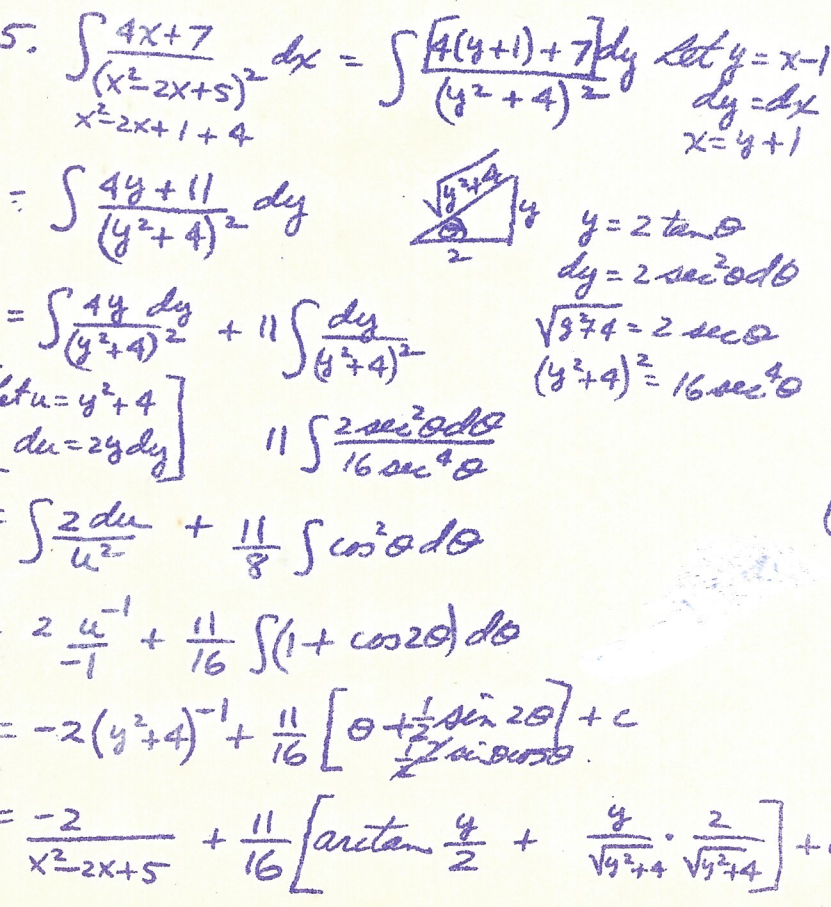 5. ∫ (4x+7)/(x²-2x+5)² dx = ∫ [4(y+1)+7]dy/(y²+4)² Let y = x-1
x²-2x+1+4 dy = dx
x = y+1
= ∫ (4y+11)/(y²+4)² dy √y²+4 y θ 2 y = 2 tanθ
dy = 2 sec²θdθ
= ∫ 4y dy/(y²+4)² + 11 ∫ dy/(y²+4)² √y²+4 = 2 secθ
(y²+4)² = 16 sec⁴θ
let u = y²+4
du = 2y dy] 11 ∫ 2 sec²θdθ/16 sec⁴θ
= ∫ 2 du/u² + 11/8 ∫ cos²θ dθ
2 u⁻¹/-1 + 11/16 ∫(1 + cos2θ) dθ
= -2(y²+4)⁻¹ + 11/16 [θ + 1/2 sin 2θ] + c
1/2 2 sinθcosθ
= -2/(x²-2x+5) + 11/16 [arctan y/2 + y/√y²+4 · 2/√y²+4] +